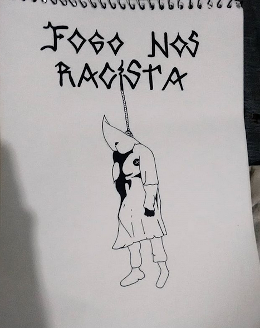 FOGO NOS
RACISTA